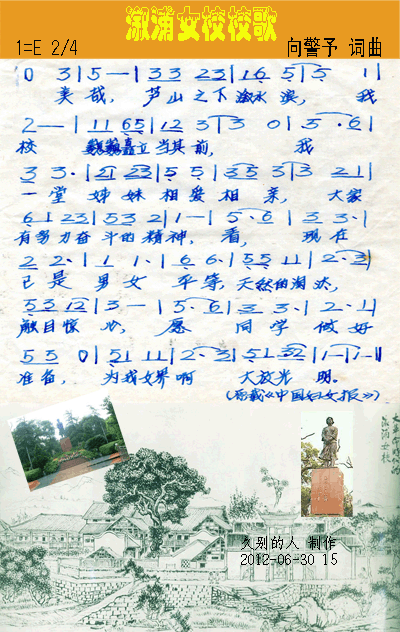 溆浦女校校歌
1=E 2/4 向警予 词曲
0 3|5 —|3 3 2 3|1 6 5|5 1|
美哉, 芦山之下 溆水滨, 我
2 —|1 1 6 5|1 2 3|3 0|5· 6|
校 巍巍矗立当其前, 我
3 3·|2 1 2 3|5 5|3 5 3|3 2 1|
一堂 姊妹相爱相亲, 大家
6 1 2 3|5 3 2|1 —|5· 6|3 3·|
有多力奋斗的精神, 看, 现在
2 2·|1 1·|6 6·|5 5 1 1|2· 3|
已是男女平等, 天然的淘汰,
5 3 1 2|3 —|5· 6|3 3·|2· 1|
触目惊心, 愿同学做好
5 5 0|5 1 1 1|2· 3|5 1 3 2|1 —|1 —‖
准备, 为我女界啊 大放光明。
(原载《中国妇女报》)
溆浦女校
久别的人 制作
2012-06-30 15